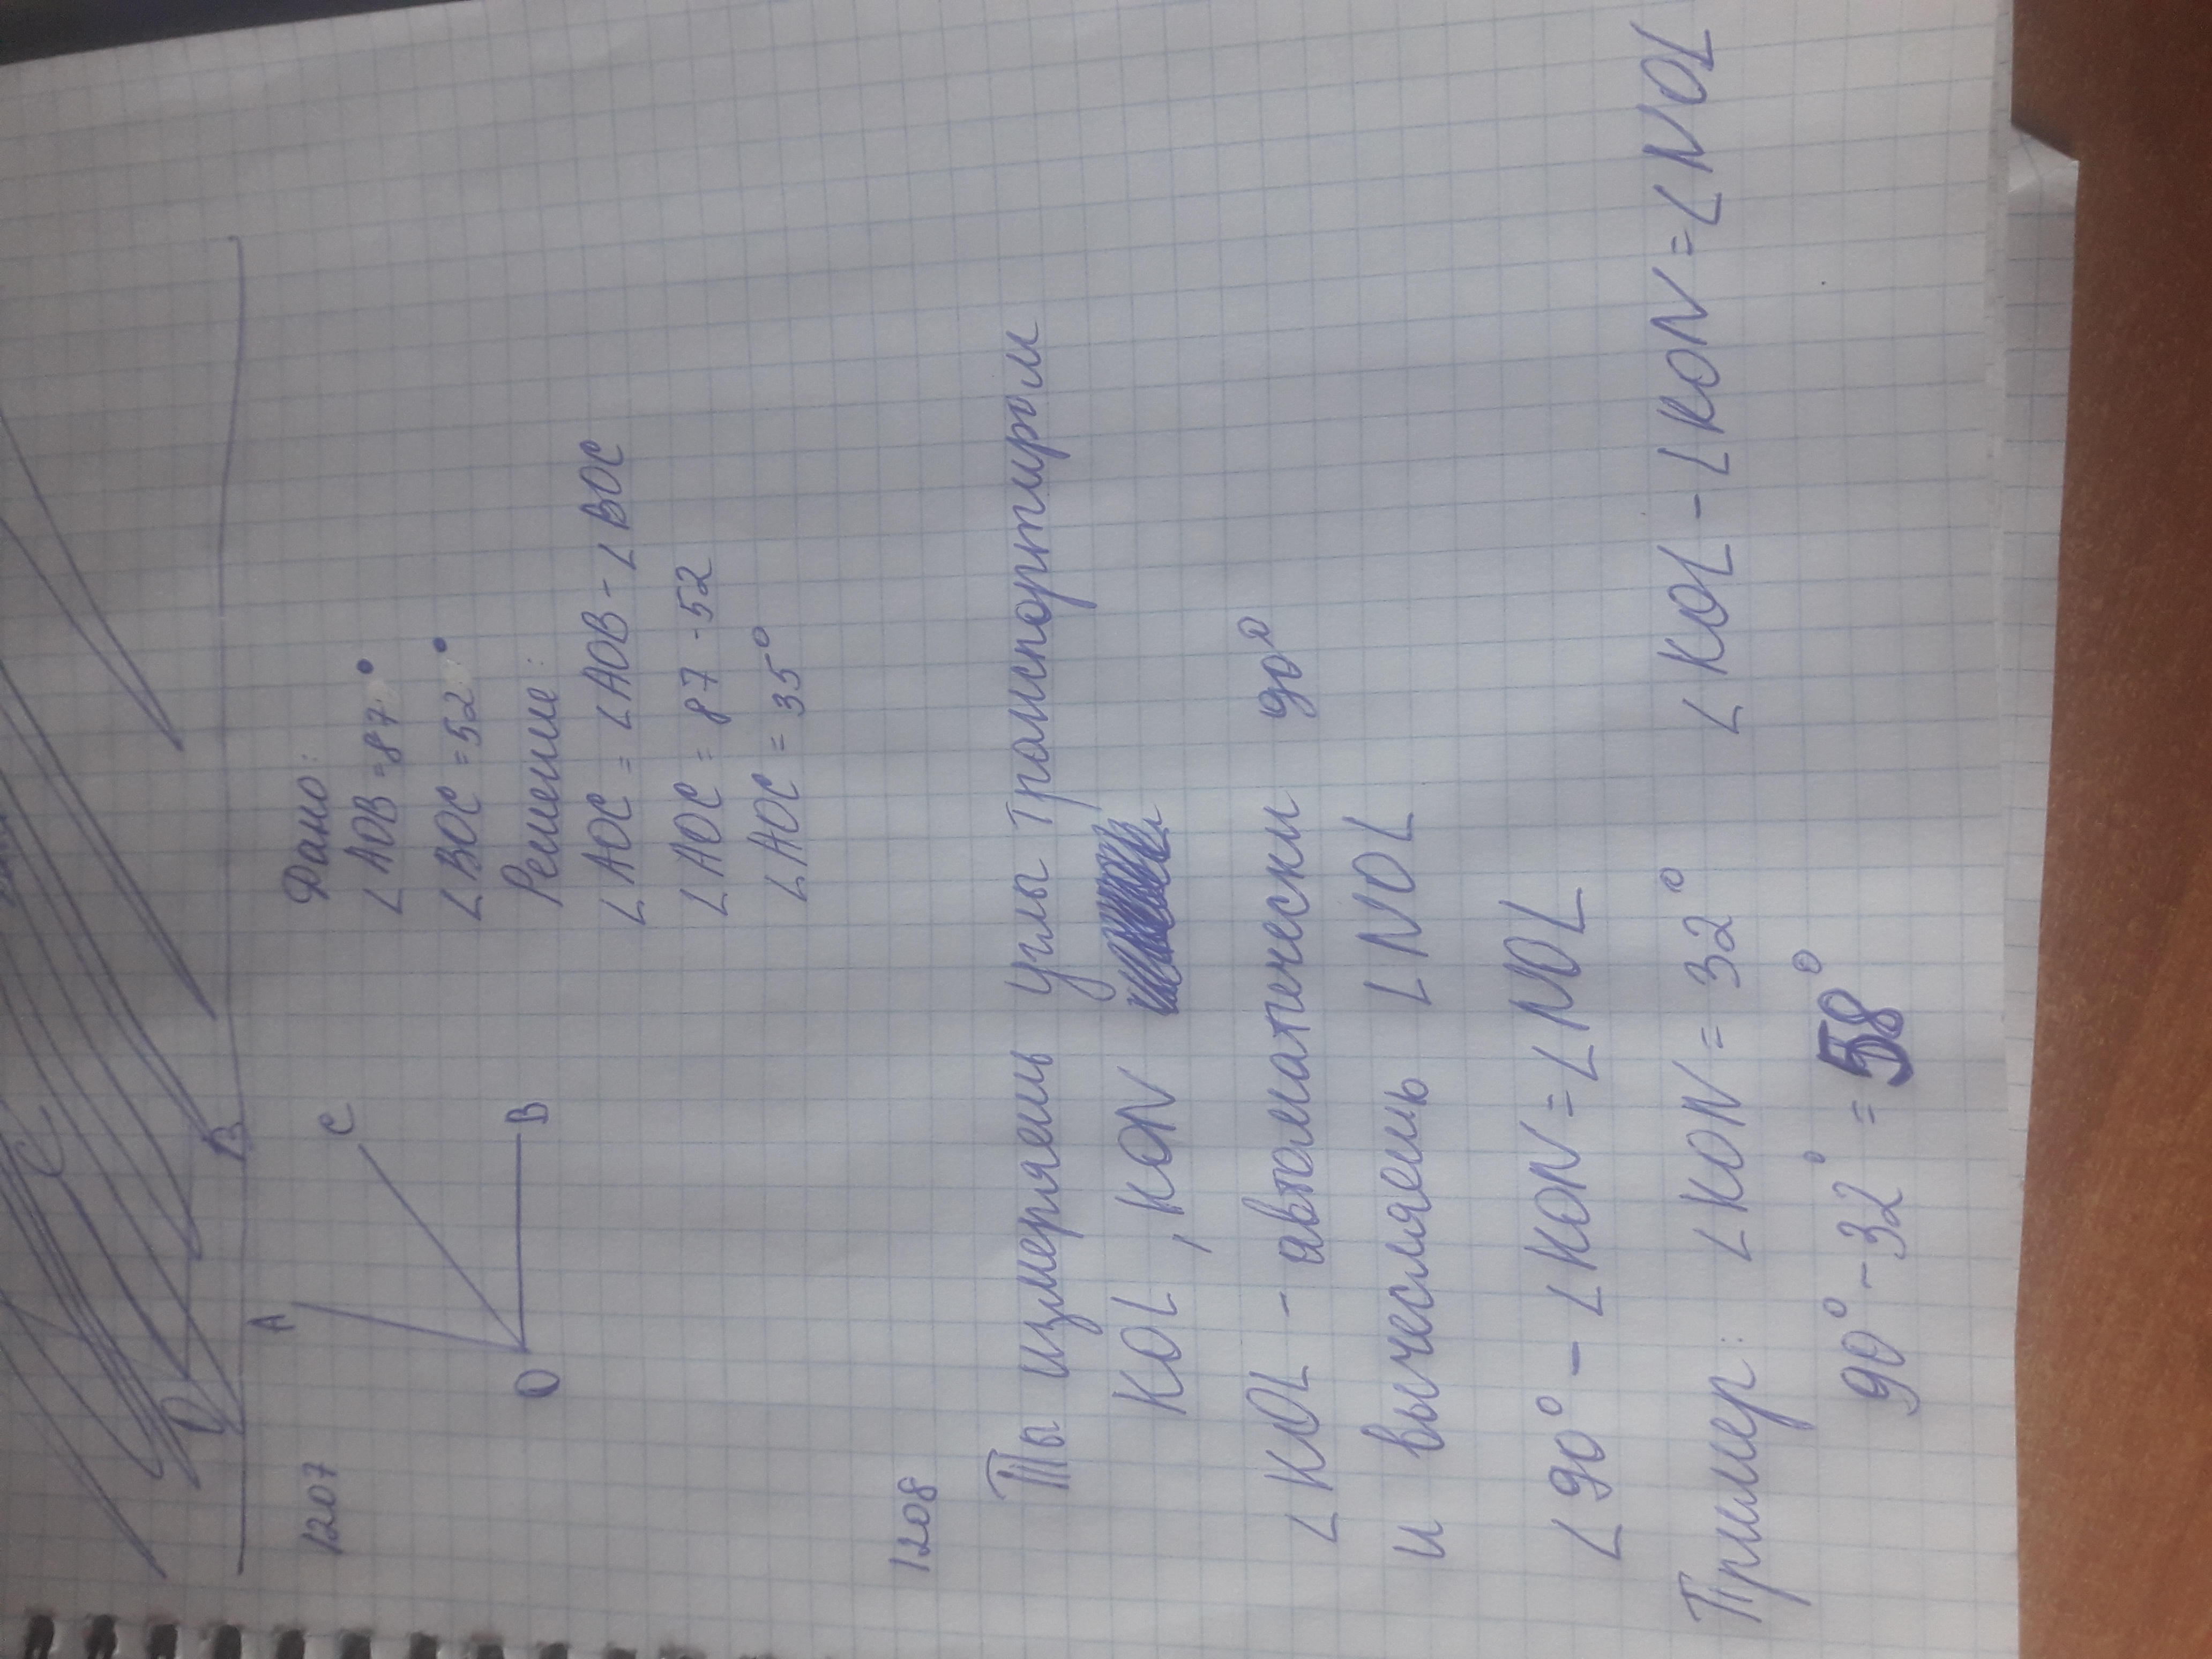 C
O
B
1207
A
C
O
B
Дано:
∠AOB = 87°
∠BOC = 52°
Решение:
∠AOC = ∠AOB - ∠BOC
∠AOC = 87 - 52
∠AOC = 35°
1208
Ты измеряешь углы Транспортиром
KOL, KON
∠KOL - автоматически 90°
и вычесляешь ∠NOL
∠90° - ∠KON = ∠NOL
Пример: ∠KON = 32° ∠KOL - ∠KON = ∠NOL
90° - 32° = 58°